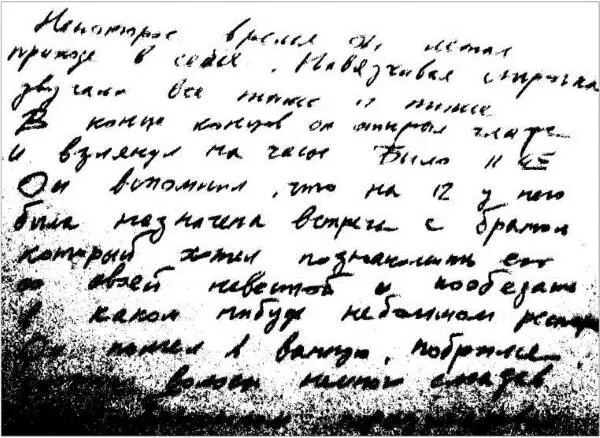 Некоторое время он лежал
приходя в себя. Навязчивая строчка
звучала все тише и тише
В конце концов он открыл глаза
и взглянул на часы Было 11 45
Он вспомнил, что на 12 у него
была назначена встреча с братом
который хотел познакомить его
со своей невестой и пообедать
в каком нибудь небольшом
Он пошел в ванную, побрился
волосы немного